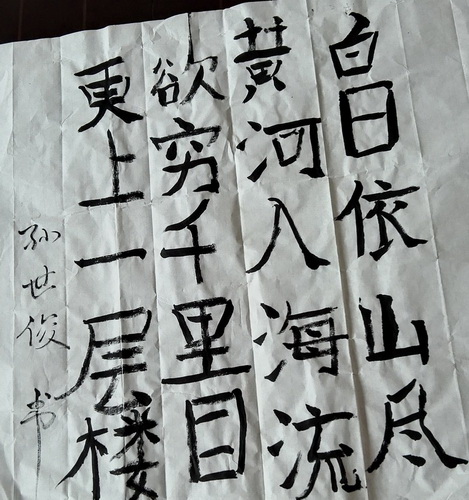 白日依山尽
黄河入海流
欲穷千里目
更上一层楼
孙世俊 书